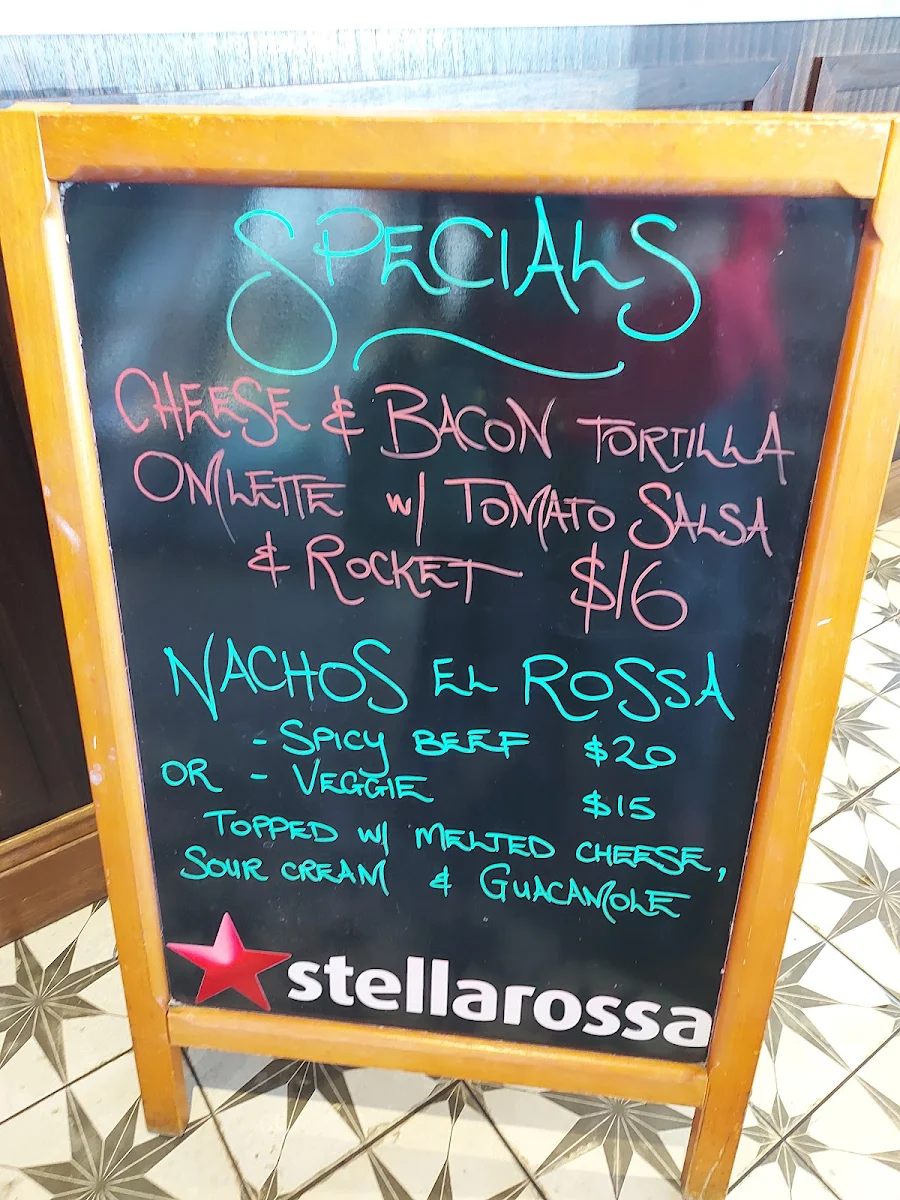 SPECIALS
CHEESE & BACON TORTILLA
OMLETTE w/ TOMATO SALSA
& ROCKET $16
NACHOS EL ROSSA
- SPICY BEEF $20
OR - VEGGIE $15
TOPPED w/ MELTED CHEESE,
SOUR CREAM & GUACAMOLE
stellarossa